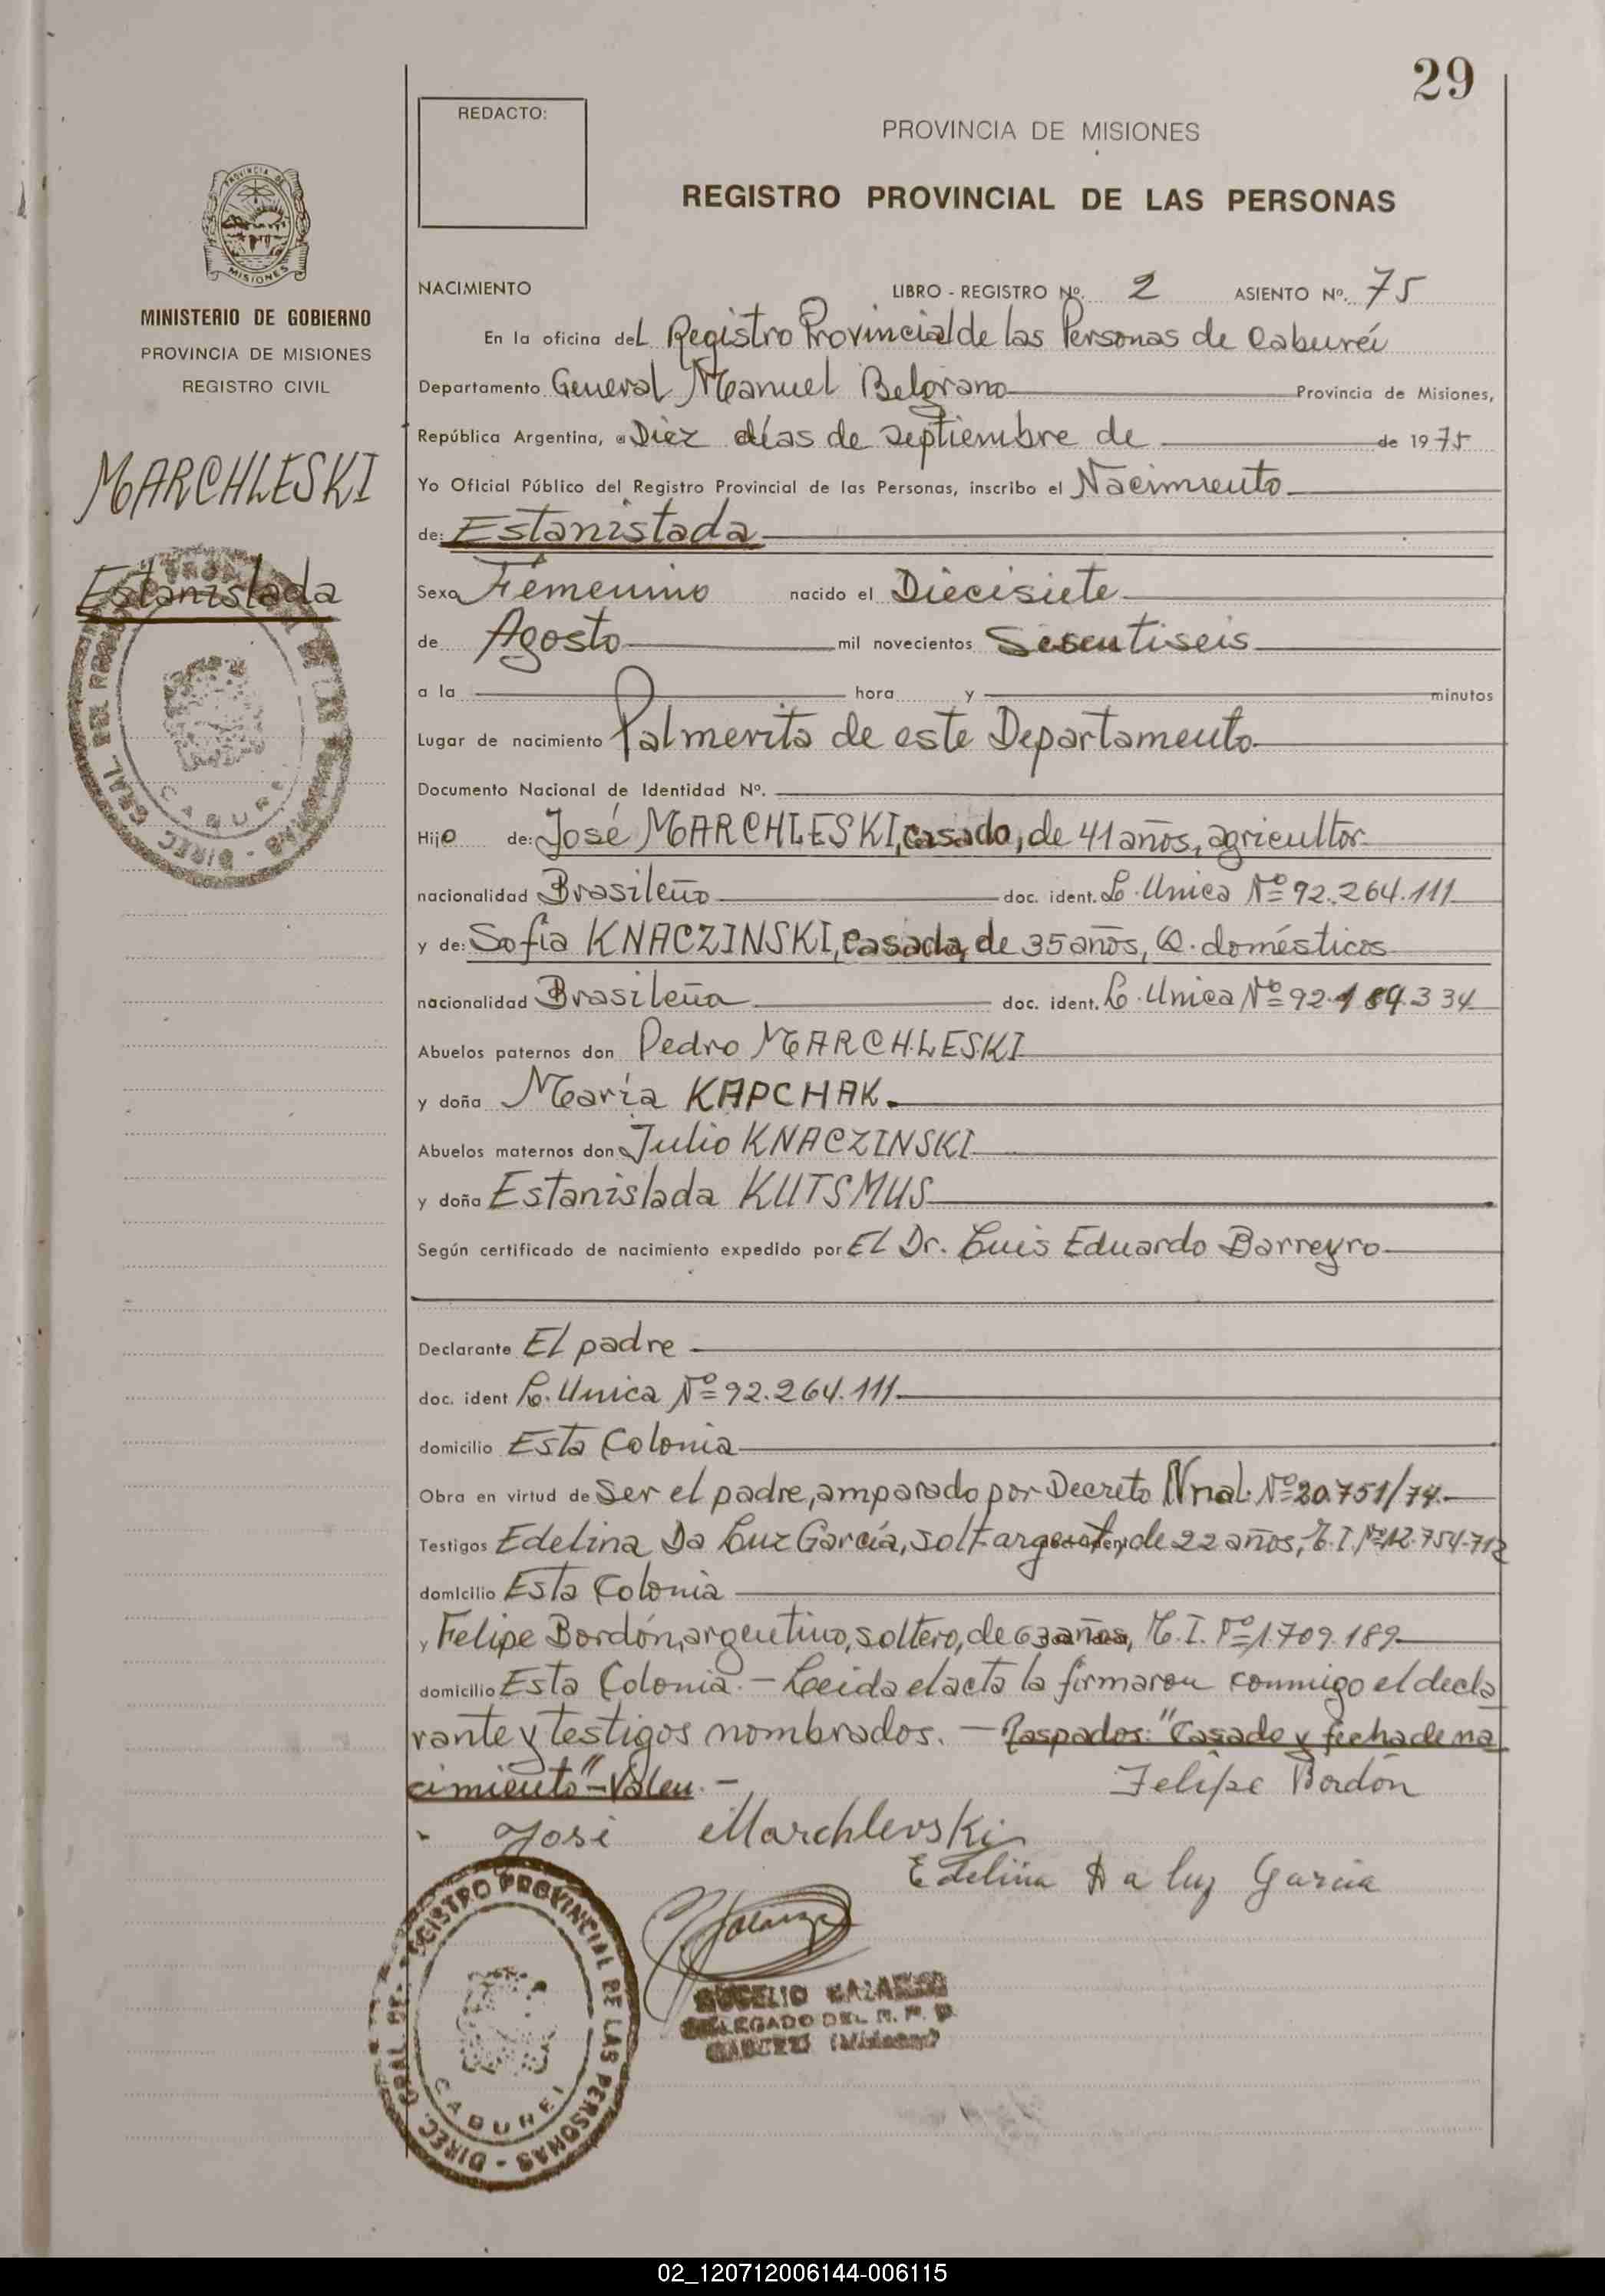 29
REDACTO:
PROVINCIA DE MISIONES
REGISTRO PROVINCIAL DE LAS PERSONAS
PROVINCIA DE
MISIONES
MINISTERIO DE GOBIERNO
PROVINCIA DE MISIONES
REGISTRO CIVIL
MARCHLESKI
Estanislada
CABURE
NACIMIENTO LIBRO - REGISTRO Nº. 2 ASIENTO Nº. 75
En la oficina del Registro Provincial de las Personas de Cabureí
Departamento General Manuel Belgrano Provincia de Misiones,
República Argentina, a Diez días de Septiembre de de 1975
Yo Oficial Público del Registro Provincial de las Personas, inscribo el Nacimiento
de: Estanistada
Sexo Femenino nacido el Diecisiete
de Agosto mil novecientos Sesentiseis
a la hora y minutos
Lugar de nacimiento Palmerita de este Departamento
Documento Nacional de Identidad Nº.
Hijo de: José MARCHLESKI, casado, de 41 años, agricultor
nacionalidad Brasileño doc. ident. L. Unica Nº 92.264.111
y de: Sofía KNACZINSKI, Casada, de 35 años, Q. domésticos
nacionalidad Brasileña doc. ident. L. Unica Nº 92.184.334
Abuelos paternos don Pedro MARCHLESKI
y doña María KAPCHAK.
Abuelos maternos don Julio KNACZINSKI
y doña Estanislada KUTSMUS
Según certificado de nacimiento expedido por El Dr. Luis Eduardo Barreyro
Declarante El padre
doc. ident L. Unica Nº 92.264.111
domicilio Esta Colonia
Obra en virtud de Ser el padre, amparado por Decreto Nnal. Nº 20.751/74.
Testigos Edelina Da Luz García, solt de 22 años, M.I. Nº 12.754.712
domicilio Esta Colonia
y Felipe Bordón, argentino, soltero, de 63 años, M.I. Nº 1.709.189
domicilio Esta Colonia. - Leida el acta la firmaron conmigo el decla
rante y testigos nombrados. - Raspados: "Casado y fecha de na
cimiento" - Valen. -
Felipe Bordón
José Marchlevski
Edelina Da luz Garcia
REGISTRO PROVINCIAL DE LAS PERSONAS - DIREC. GRAL. DEL
CABUREI
DELEGADO DEL R. P. P.
CABUREI (Misiones)
02_120712006144-006115